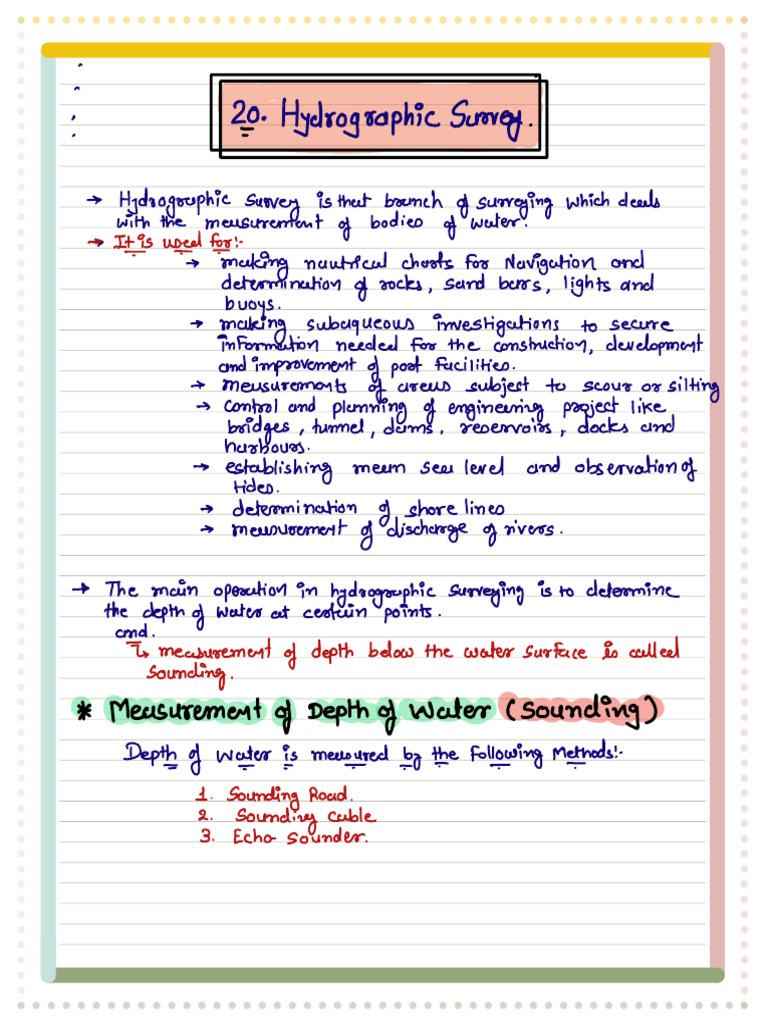 20. Hydrographic Survey.
→ Hydrographic survey is that branch of surveying which deals
with the measurement of bodies of water.
→ It is used for:-
→ making nautrical charts for Navigation and
determination of rocks, sand bars, lights and
buoys.
→ making subaqueous investigations to secure
information needed for the construction, development
and improvement of port facilities.
→ measurements of areas subject to scour or silting
→ control and planning of engineering project like
bridges, tunnel, dams, reservoirs, docks and
harbours.
→ establishing mean sea level and observation of
tides.
→ determination of shore lines
→ measurement of discharge of rivers.
→ The main operation in hydrographic surveying is to determine
the depth of water at certain points.
and.
↳ measurement of depth below the water surface is called
sounding.
* Measurement of Depth of Water (Sounding)
Depth of water is measured by the following Methods:-
1. Sounding Road.
2. Sounding cable
3. Echo- Sounder.